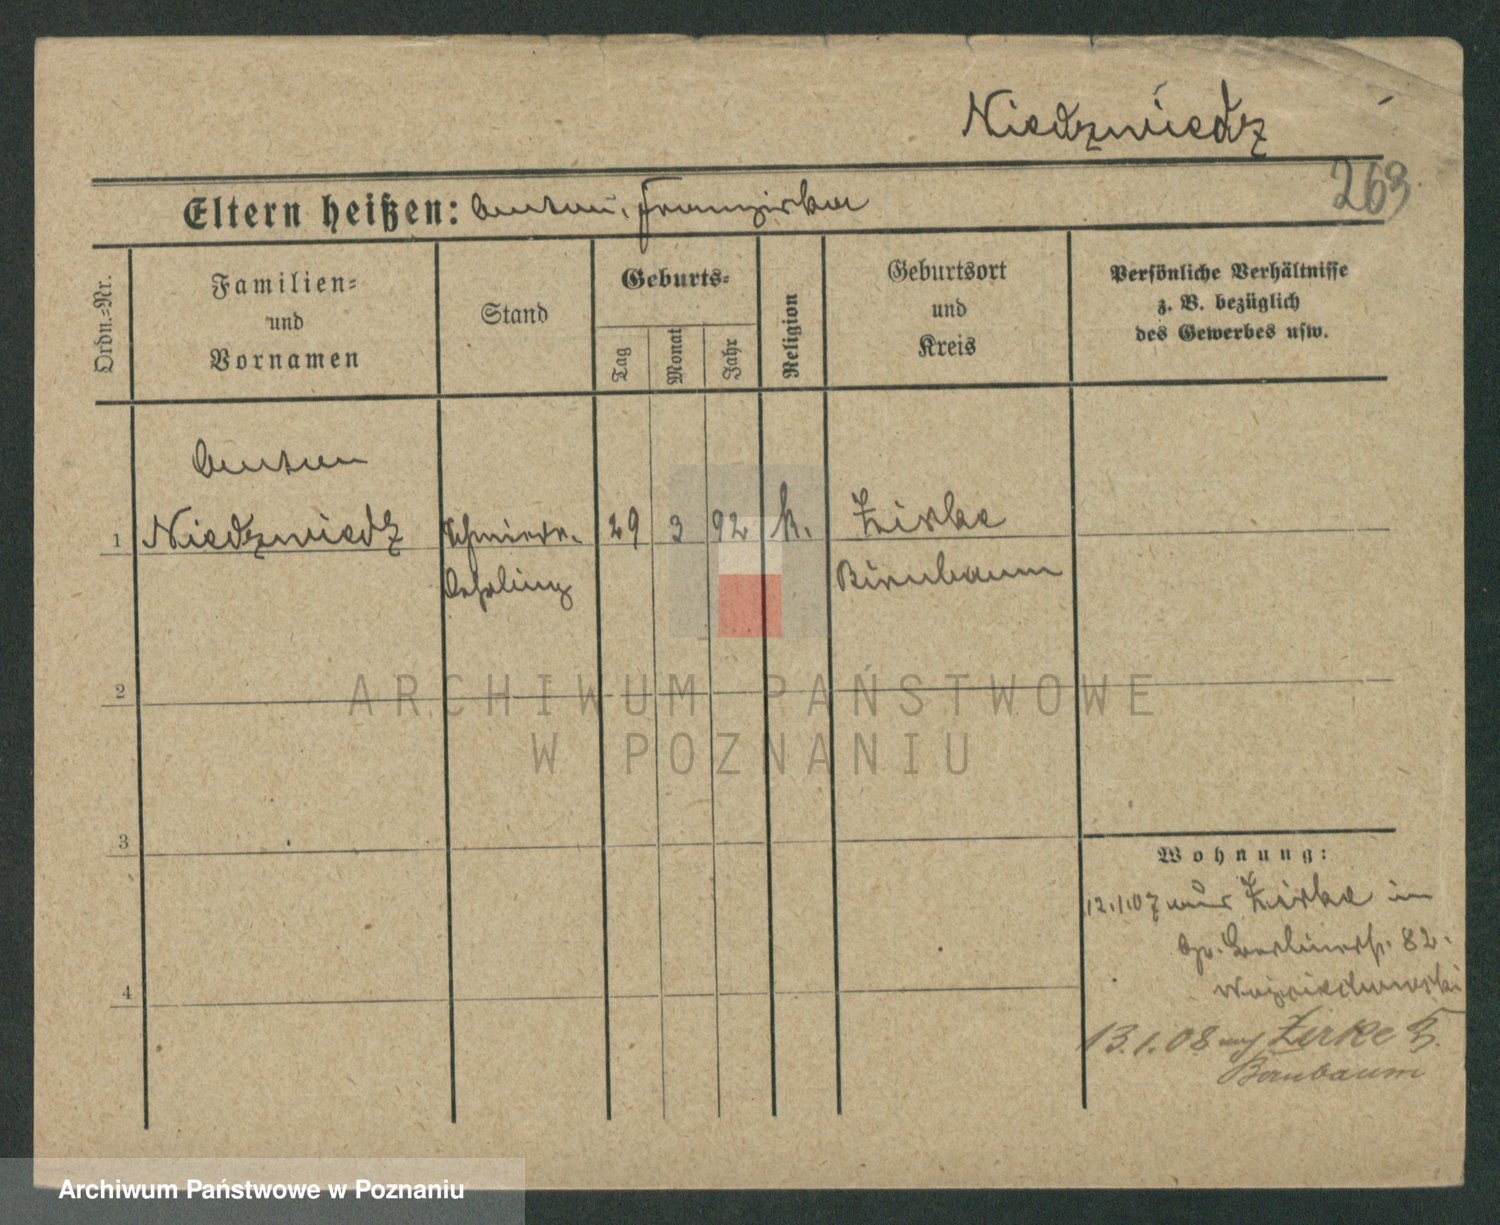 Niedzwiedz
263
Eltern heißen: Anton, Franziska
Ordn.-Nr.
Familien-
und
Vornamen
Stand
Geburts-
Tag
Monat
Jahr
Religion
Geburtsort
und
Kreis
Persönliche Verhältnisse
z. B. bezüglich
des Gewerbes usw.
Anton
1 Niedzwiedz Schmiede- 29 3 92 k. Zirke
Lehrling Birnbaum
2
3
4
Wohnung:
12.1.07 aus Zirke in
Berlinerstr. 82.
Wojciechowski
13.1.08 Zirke K.
Birnbaum
ARCHIWUM PAŃSTWOWE
W POZNANIU
Archiwum Państwowe w Poznaniu